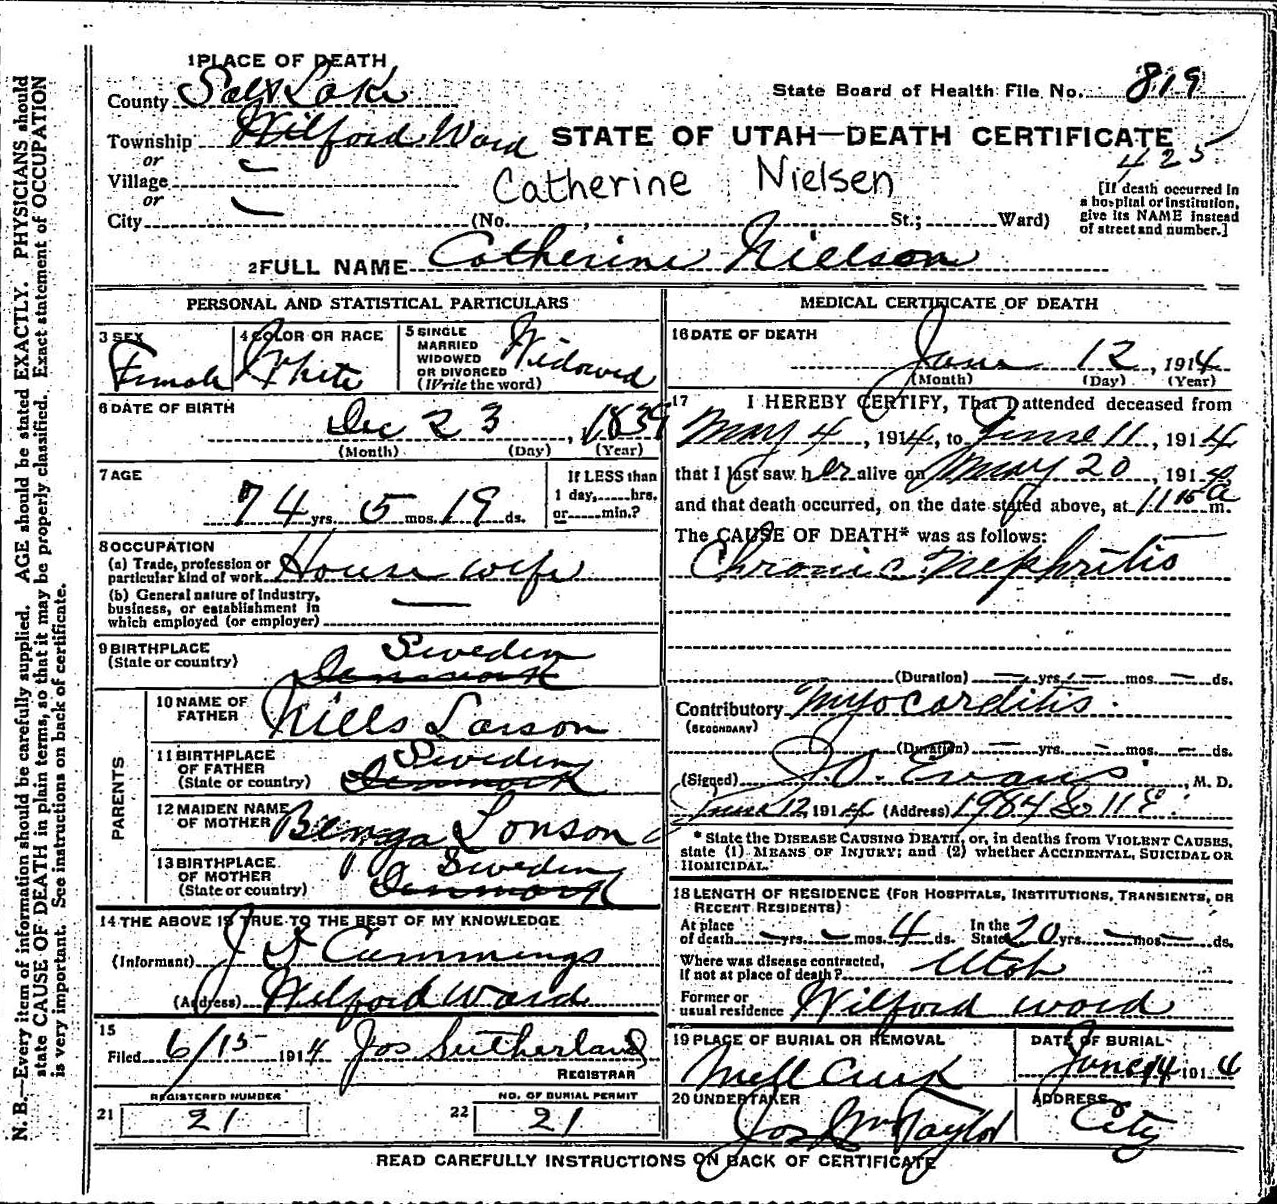 1 PLACE OF DEATH
County Salt Lake
State Board of Health File No. 819
Township Wilford Ward
STATE OF UTAH—DEATH CERTIFICATE
425
or
Village
or
City
Catherine Nielsen
(No. , St.; Ward)
[If death occurred in a hospital or institution, give its NAME instead of street and number.]
2 FULL NAME Catherine Nielson
PERSONAL AND STATISTICAL PARTICULARS
3 SEX Female
4 COLOR OR RACE White
5 SINGLE MARRIED WIDOWED OR DIVORCED (Write the word) Widowed
6 DATE OF BIRTH
Dec 23, 1839
(Month) (Day) (Year)
7 AGE
74 yrs. 5 mos. 19 ds.
If LESS than 1 day, hrs. or min.?
8 OCCUPATION
(a) Trade, profession or particular kind of work House wife
(b) General nature of Industry, business, or establishment in which employed (or employer)
9 BIRTHPLACE (State or country) Sweden
Denmark
PARENTS
10 NAME OF FATHER Niels Larson
11 BIRTHPLACE OF FATHER (State or country) Sweden
Denmark
12 MAIDEN NAME OF MOTHER Benga Lonson
13 BIRTHPLACE OF MOTHER (State or country) Sweden
Denmark
14 THE ABOVE IS TRUE TO THE BEST OF MY KNOWLEDGE
(Informant) J D Cummings
(Address) Wilford Ward
15
Filed 6/15 1914 Jos Sutherland
REGISTRAR
REGISTERED NUMBER
21 21
NO. OF BURIAL PERMIT
22 21
MEDICAL CERTIFICATE OF DEATH
16 DATE OF DEATH
June 12, 1914
(Month) (Day) (Year)
17 I HEREBY CERTIFY, That I attended deceased from
May 4, 1914, to June 11, 1914
that I last saw her alive on May 20, 191
and that death occurred, on the date stated above, at 11 15 a m.
The CAUSE OF DEATH* was as follows:
Chronic Nephritis
(Duration) — yrs. — mos. — ds.
Contributory Myocarditis.
(SECONDARY)
(Duration) — yrs. — mos. — ds.
(Signed) J. O. Evans, M. D.
June 12, 1914 (Address) 1984 So 11 E.
* State the DISEASE CAUSING DEATH, or, in deaths from VIOLENT CAUSES, state (1) MEANS OF INJURY; and (2) whether ACCIDENTAL, SUICIDAL OR HOMICIDAL.
18 LENGTH OF RESIDENCE (FOR HOSPITALS, INSTITUTIONS, TRANSIENTS, OR RECENT RESIDENTS)
At place of death — yrs. — mos. 4 ds. In the State 20 yrs. — mos. — ds.
Where was disease contracted, if not at place of death? Utah
Former or usual residence Wilford ward
19 PLACE OF BURIAL OR REMOVAL
Mill Creek
DATE OF BURIAL
June 14 1914
20 UNDERTAKER
Jos Wm Taylor
ADDRESS
City
READ CAREFULLY INSTRUCTIONS ON BACK OF CERTIFICATE
N. B.—Every item of information should be carefully supplied. AGE should be stated EXACTLY. PHYSICIANS should
state CAUSE OF DEATH in plain terms, so that it may be properly classified. Exact statement of OCCUPATION
is very important. See instructions on back of certificate.